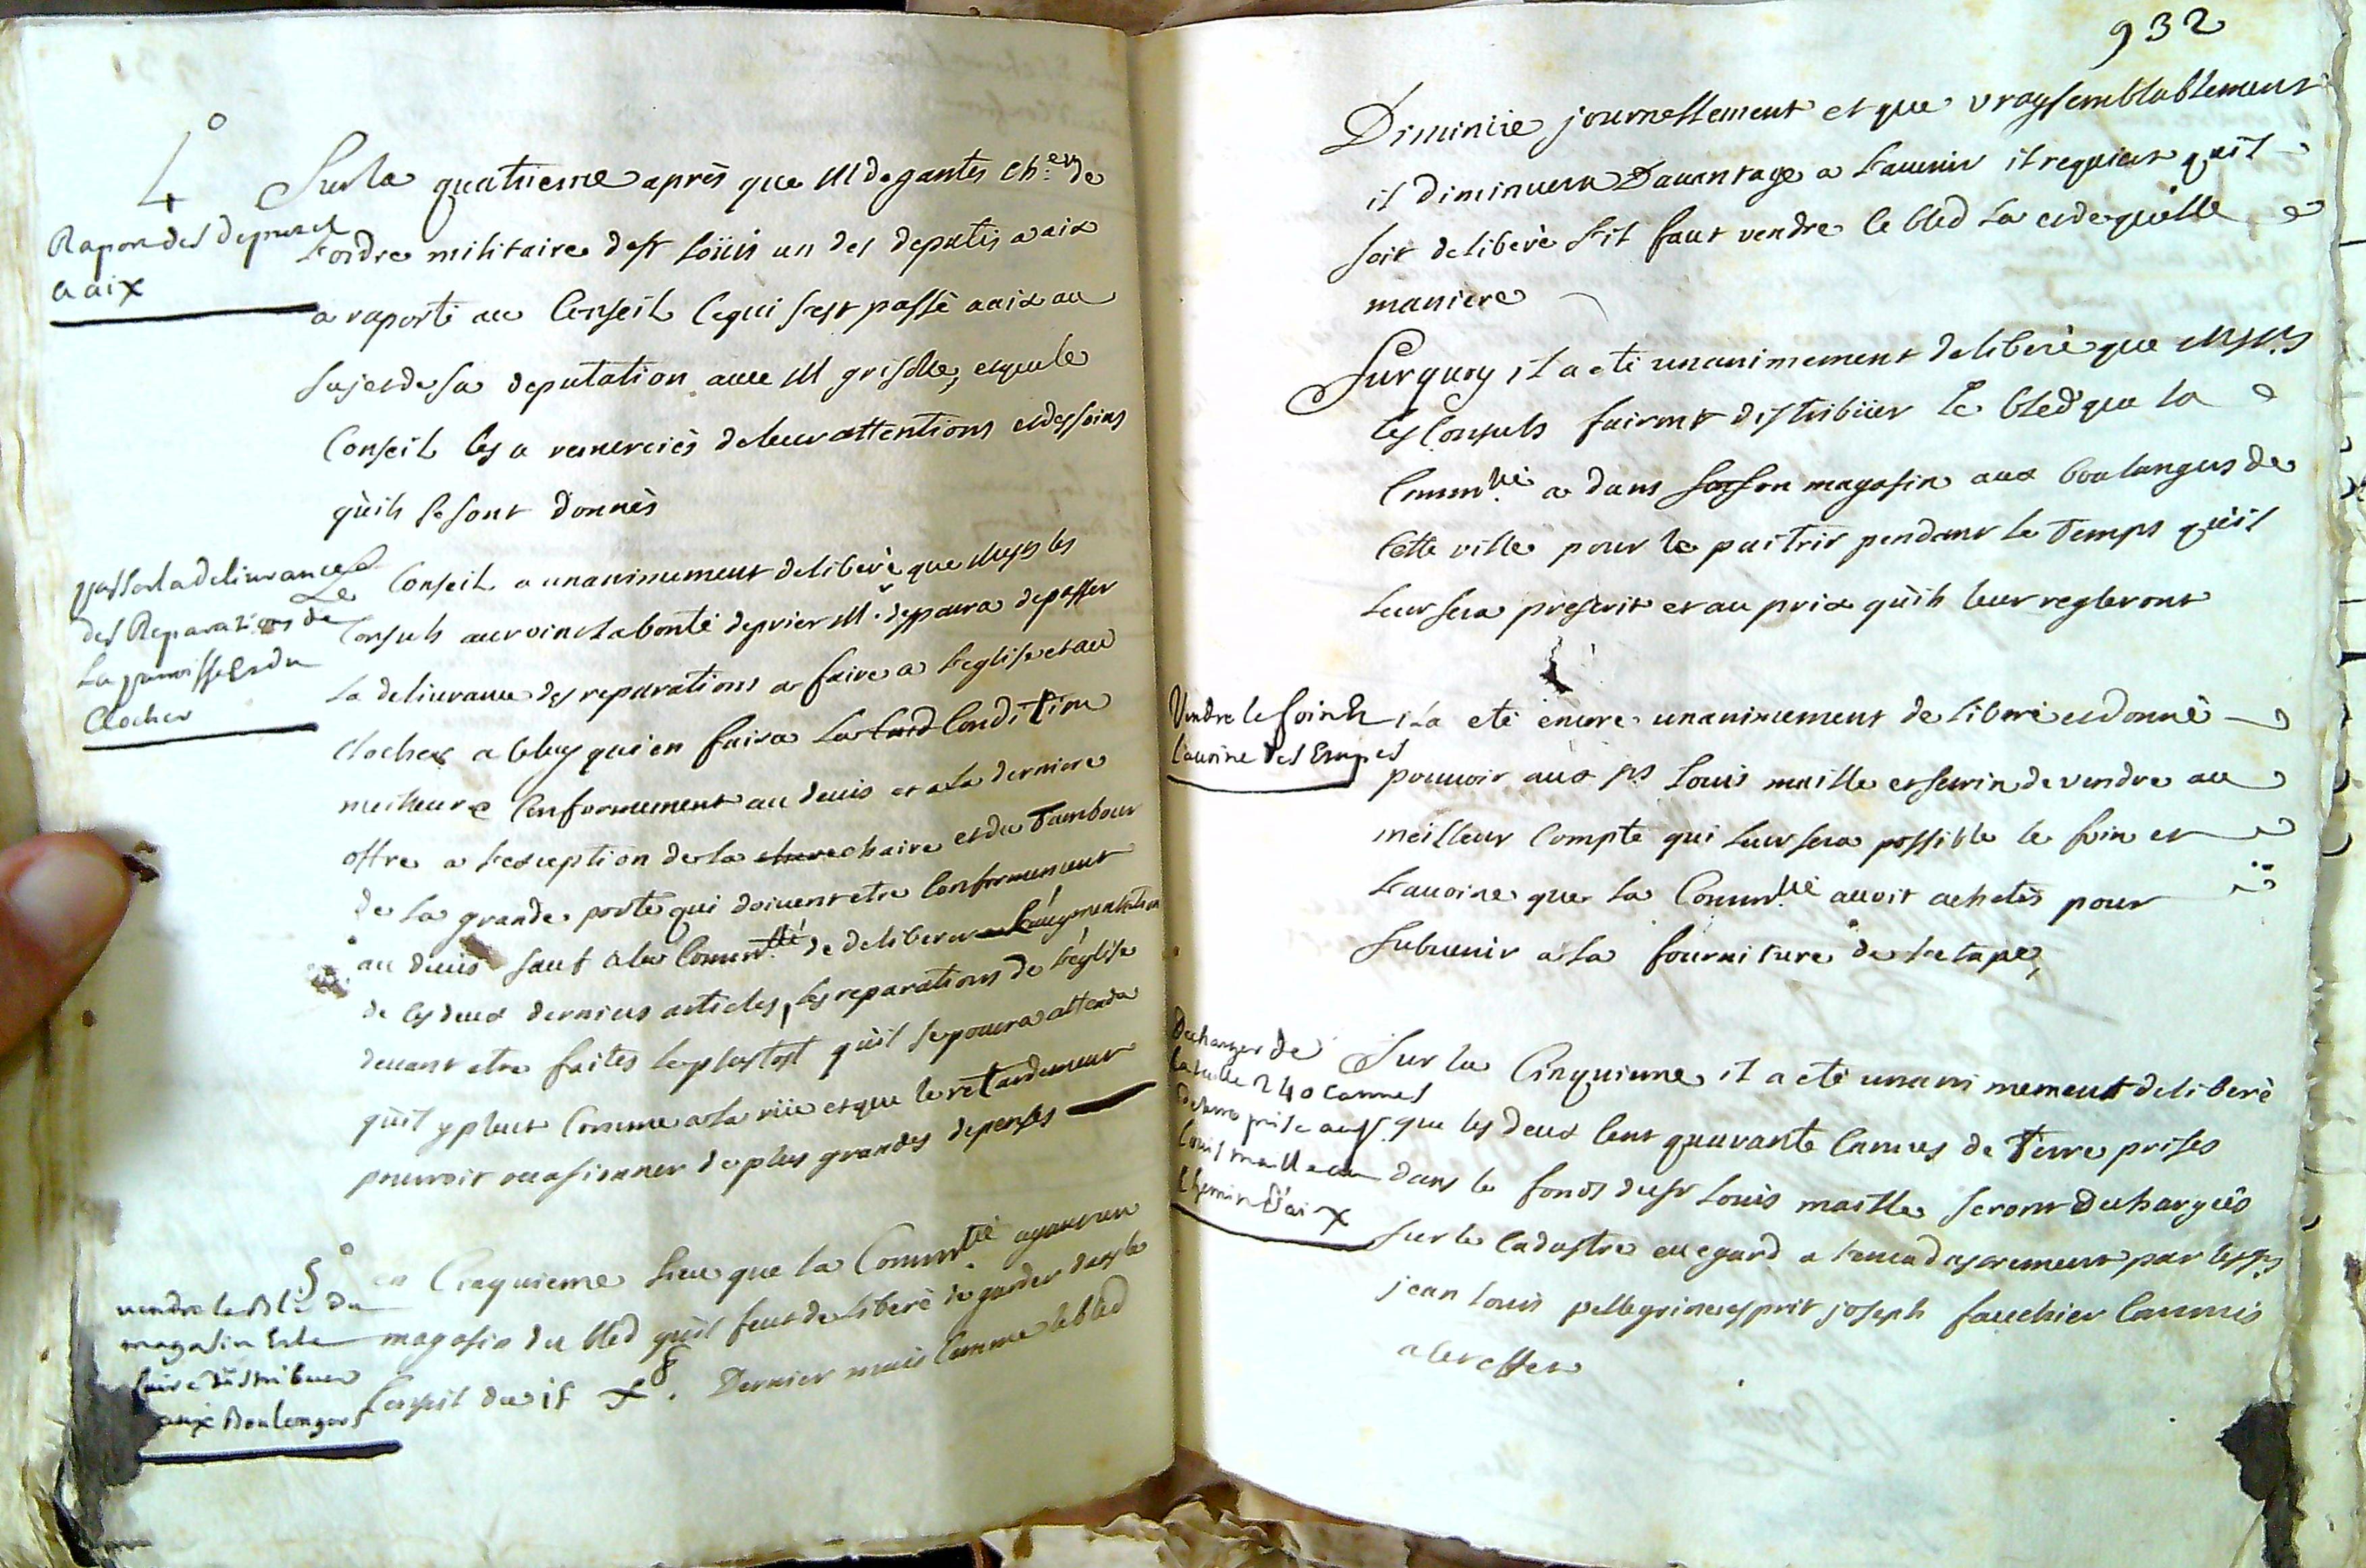 4°
Sur la quatrieme après que M de gantès ch.er de
Rapor des deputes
a aix
L'ordre militaire de st Loüis un des deputés a aix
a raporté au Conseil Cequi s'est passé a aix au
sujet de sa deputation avec M grisolle, et que le
Conseil les a remerciés de leur attentions et des soins
qu'ils se sont donnés
passer la delivrance
des Reparations de
La paroisse et du
Clocher
Le Conseil a unanimement deliberé que Mess.rs les
Consuls auroint la bonté de prier M.r de passer
La delivrance des reparations a faire a L'eglise et au
clocher a Celuy qui en faira La Condition
meilleure Conformement au devis et a La derniere
offre a L'exception de la chaire et du Tambour
de La grande porte qui doivent etre Conformement
au devis sauf a la Commté de deliberer L'augmentation
de Ces deux derniers articles, Les reparations de L'eglise
devant etre faites le plustost qu'il se pourra attendu
qu'il y pleut Comme a La rüe et que le retardement
pourroit occasionner de plus grandes depenses
5°
en Cinquieme Lieu que la Commté ayant un
vendre le Blé du
magasin Et le
faire distribuer
aux Boulengers
magasin du bled qu'il feut deliberé de garder dans le
Conseil du 15 x.e Dernier mais Comme le bled
932
Diminüe journellement et que vraysemblablement
il diminuera Davantage a L'avenir il requiert qu'il
soit deliberé s'il faut vendre le bled La et de quelle
maniere
Sur quoy il a eté unanimement deliberé que MM.rs
les Consuls fairont distribüer Le bled que la
Commté a dans son magasin aux boulangers de
Cette ville pour le paitrir pendant Le Temps qu'il
Leur sera prescrit et au prix qu'ils leur regleront
Vendre le foin Et
L'avoine des Etapes
il a eté encore unanimement deliberé et donné
pouvoir aux srs Louis maille et de vendre au
meilleur Compte qui Leur sera possible le foin et
L'avoine que La Commté avoit achetés pour
Subvenir a La fourniture de L'etape,
Decharger de
La taille 240 Cannes
de terre prise au sr
Louis maille au
Chemin D'aix
Sur La Cinquieme il a eté unanimement deliberé
que les deux Cent quarante Cannes de Terre prises
dans le fonds du sr Loüis maille seront Dechargées
sur le Cadastre eu egard a L'encadastrement par les srs
jean Louis pellegrin et esprit joseph fauchier Commis
a Cet effet